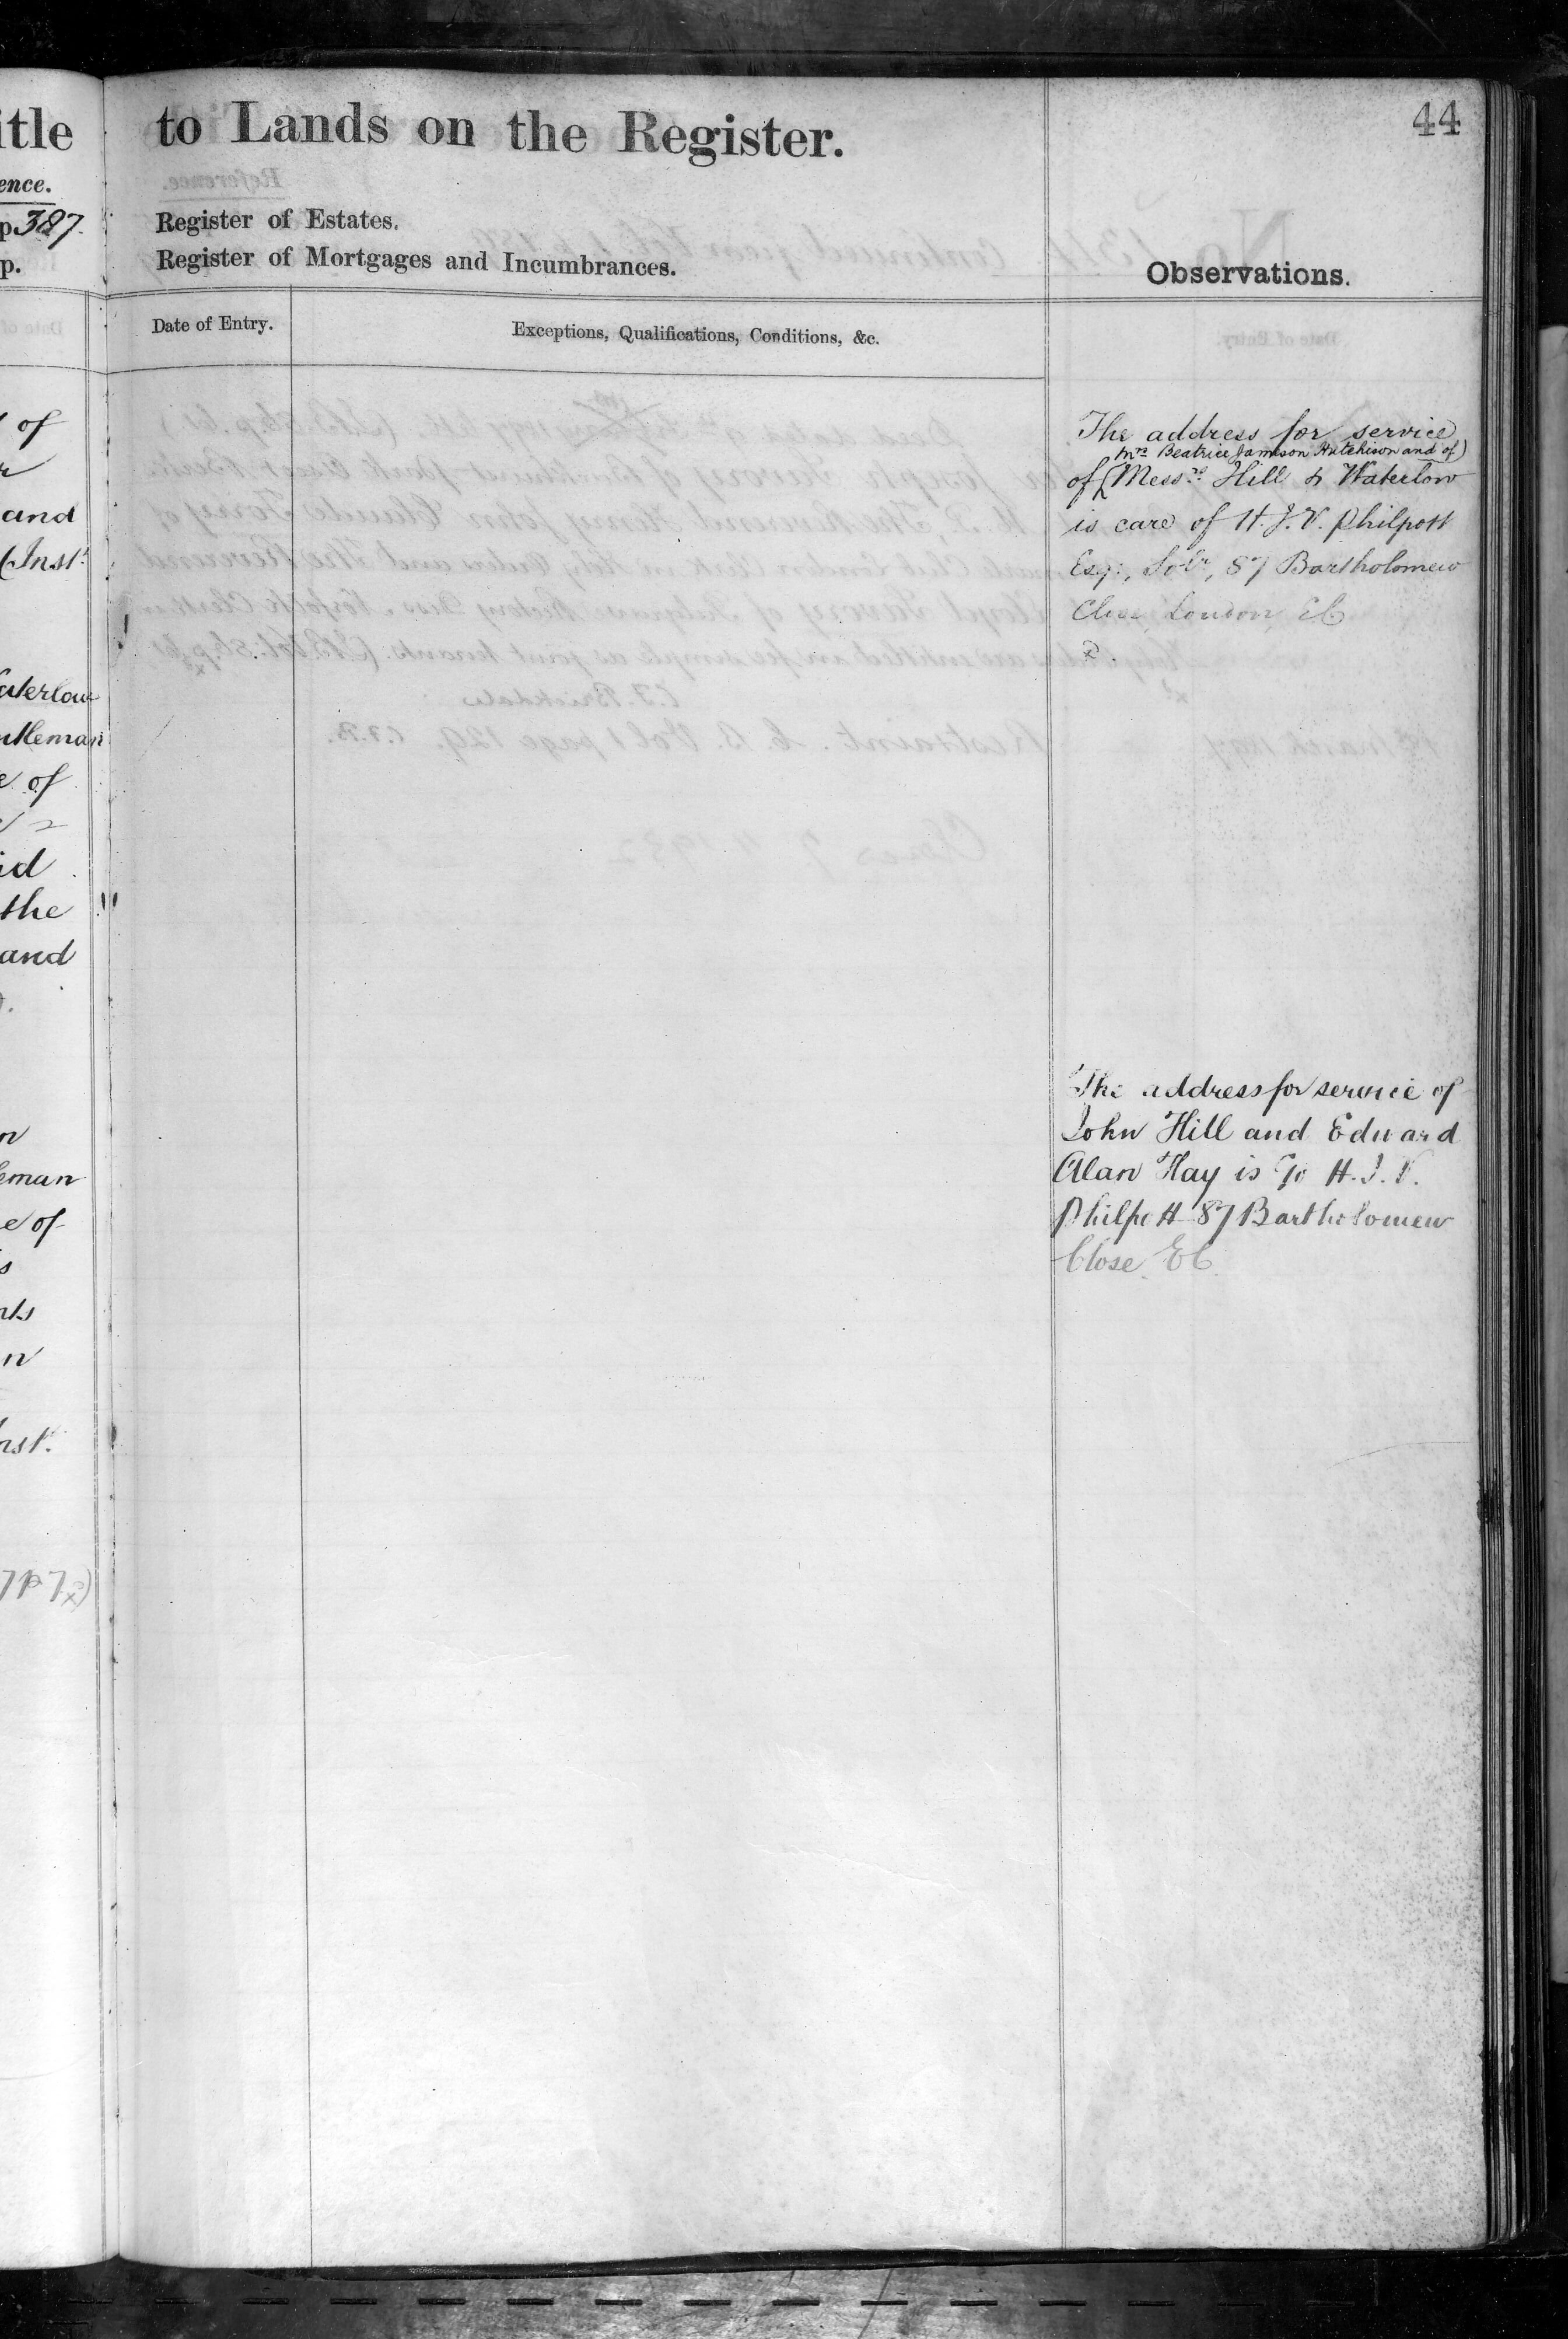 itle
ence.
p. 387
p.
of
and
(Inst.
aterlow
ntleman
e of
id
the
and
n
eman
e of
s
nts
n
nst.
to Lands on the Register.
44
Register of Estates.
Register of Mortgages and Incumbrances.
Observations.
Date of Entry.
Exceptions, Qualifications, Conditions, &c.
The address for service
Mrs Beatrice Jameson Hutchison and of)
of (Messrs Hill & Waterlow
is care of H. J. V. Philpott
Esq:, Solr, 87 Bartholomew
Close, London, EC
The address for service of
John Hill and Edward
Alan Hay is c/o H. J. V.
Philpott 87 Bartholomew
Close EC